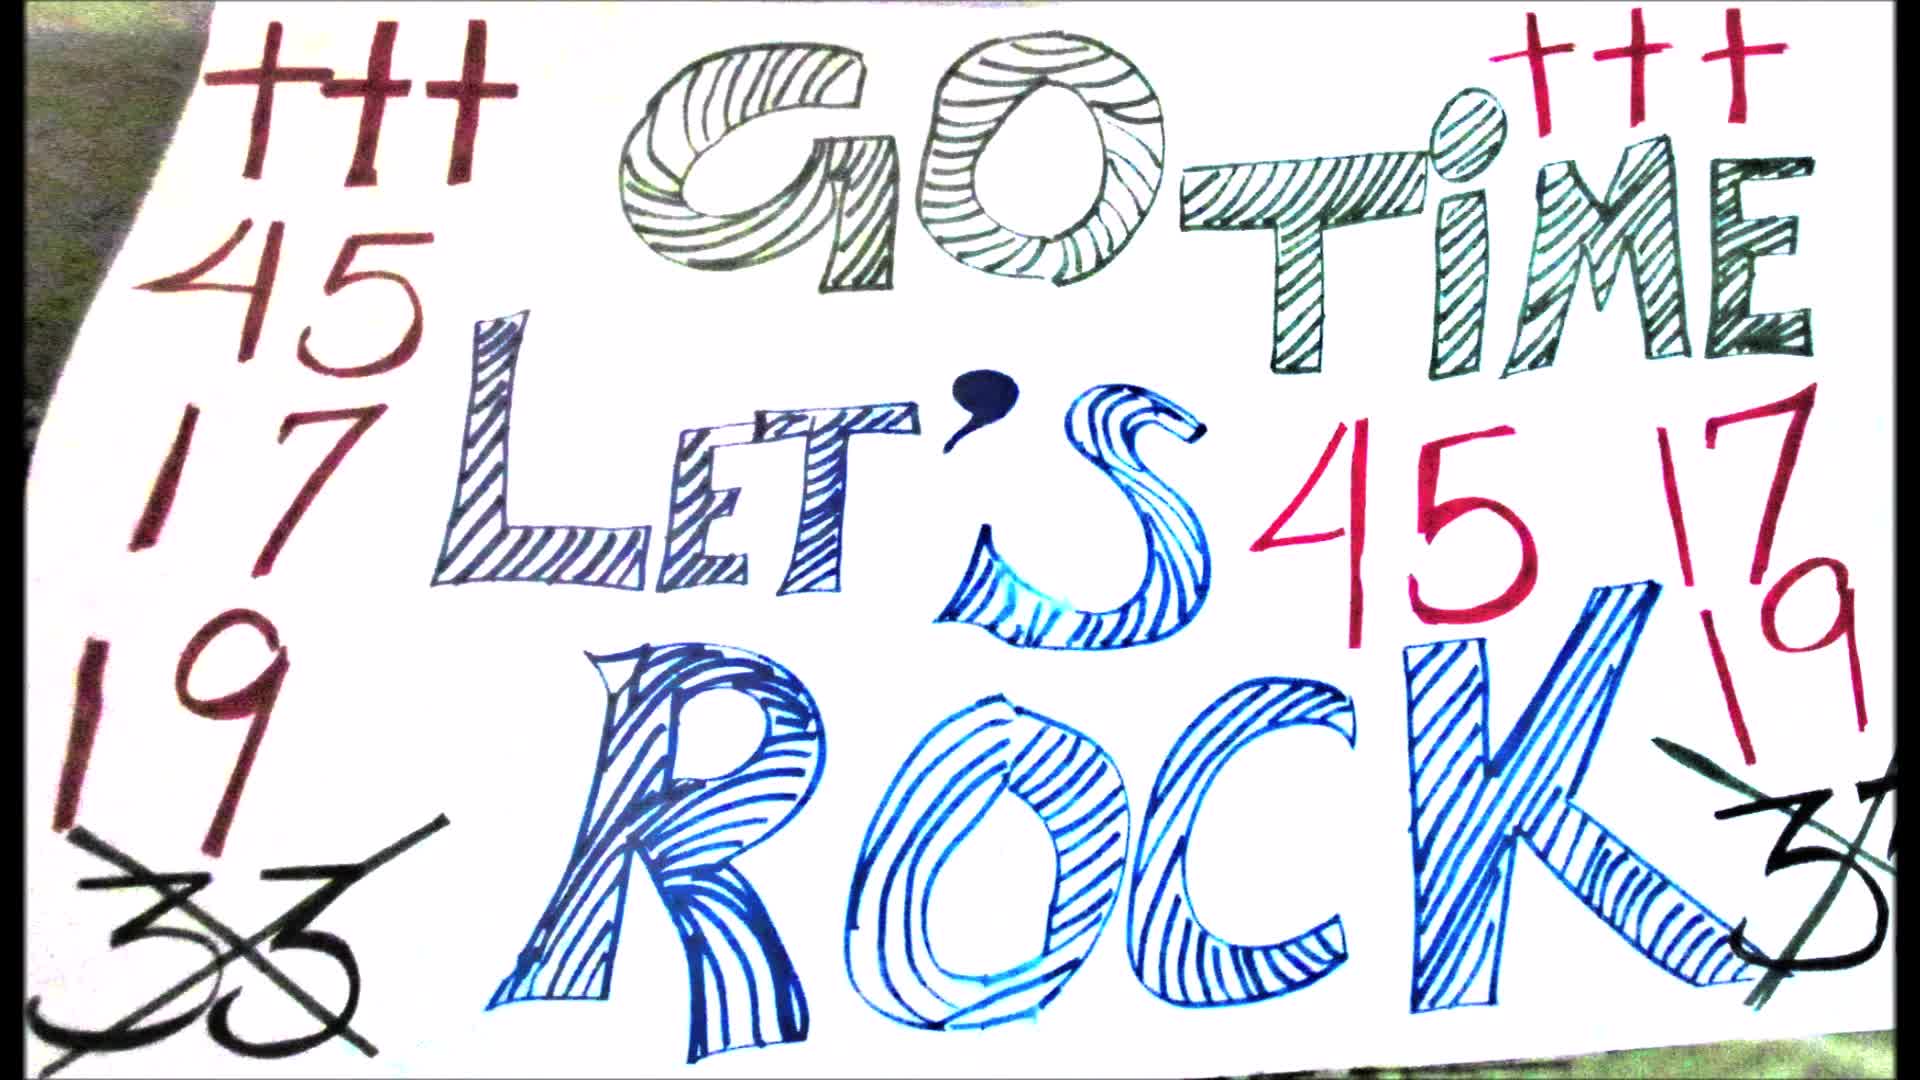 +++ GO TiME +++
45
LET'S 45 17
17
19 ROCK 19
33 33